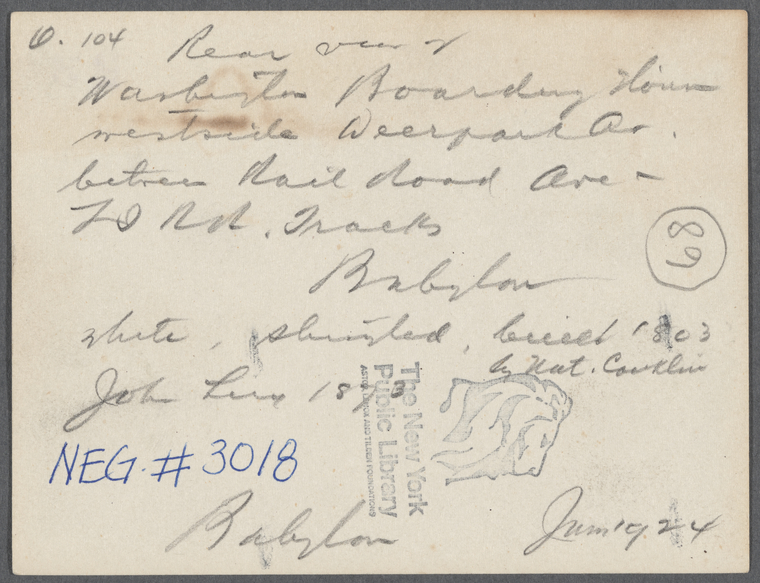 O. 104
Rear view of
Washington Boarding House
westside Deerpark Av.
between Rail Road Ave -
L I R.R. Tracks
Babylon
89
white, shingled, built 1803
by Nat. Conklin
John 18
The New York
Public Library
ASTOR, LENOX AND TILDEN FOUNDATIONS
NEG. # 3018
Babylon
24